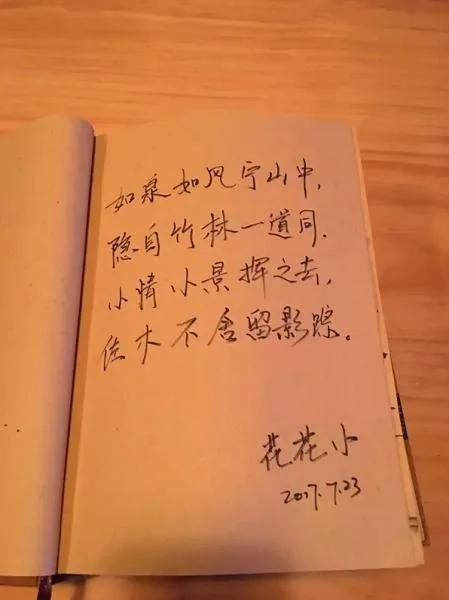 如泉如风宁山中，
隐自竹林一道同．
小情小景挥之去，
木不舍留影踪。
花花小
2017.7.23